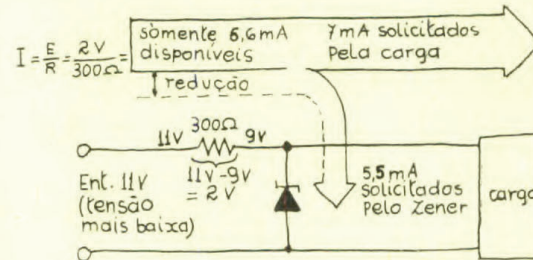 sòmente 6,6mA
disponíveis
7mA solicitados
pela carga
I = E/R = 2V/300Ω =
redução
11v 300Ω 9v
11v-9v
= 2v
Ent. 11v
(tensão
mais baixa)
5,5mA
solicitados
pelo Zener
carga